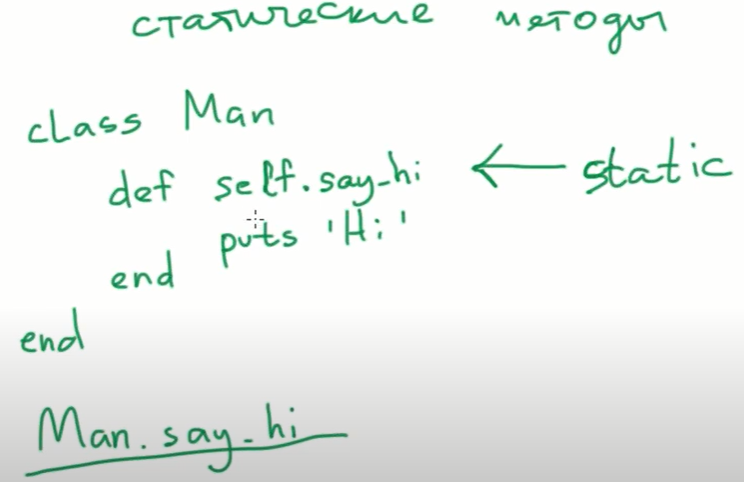 статические методы
class Man
def self.say_hi ← static
puts 'Hi'
end
end
Man.say_hi